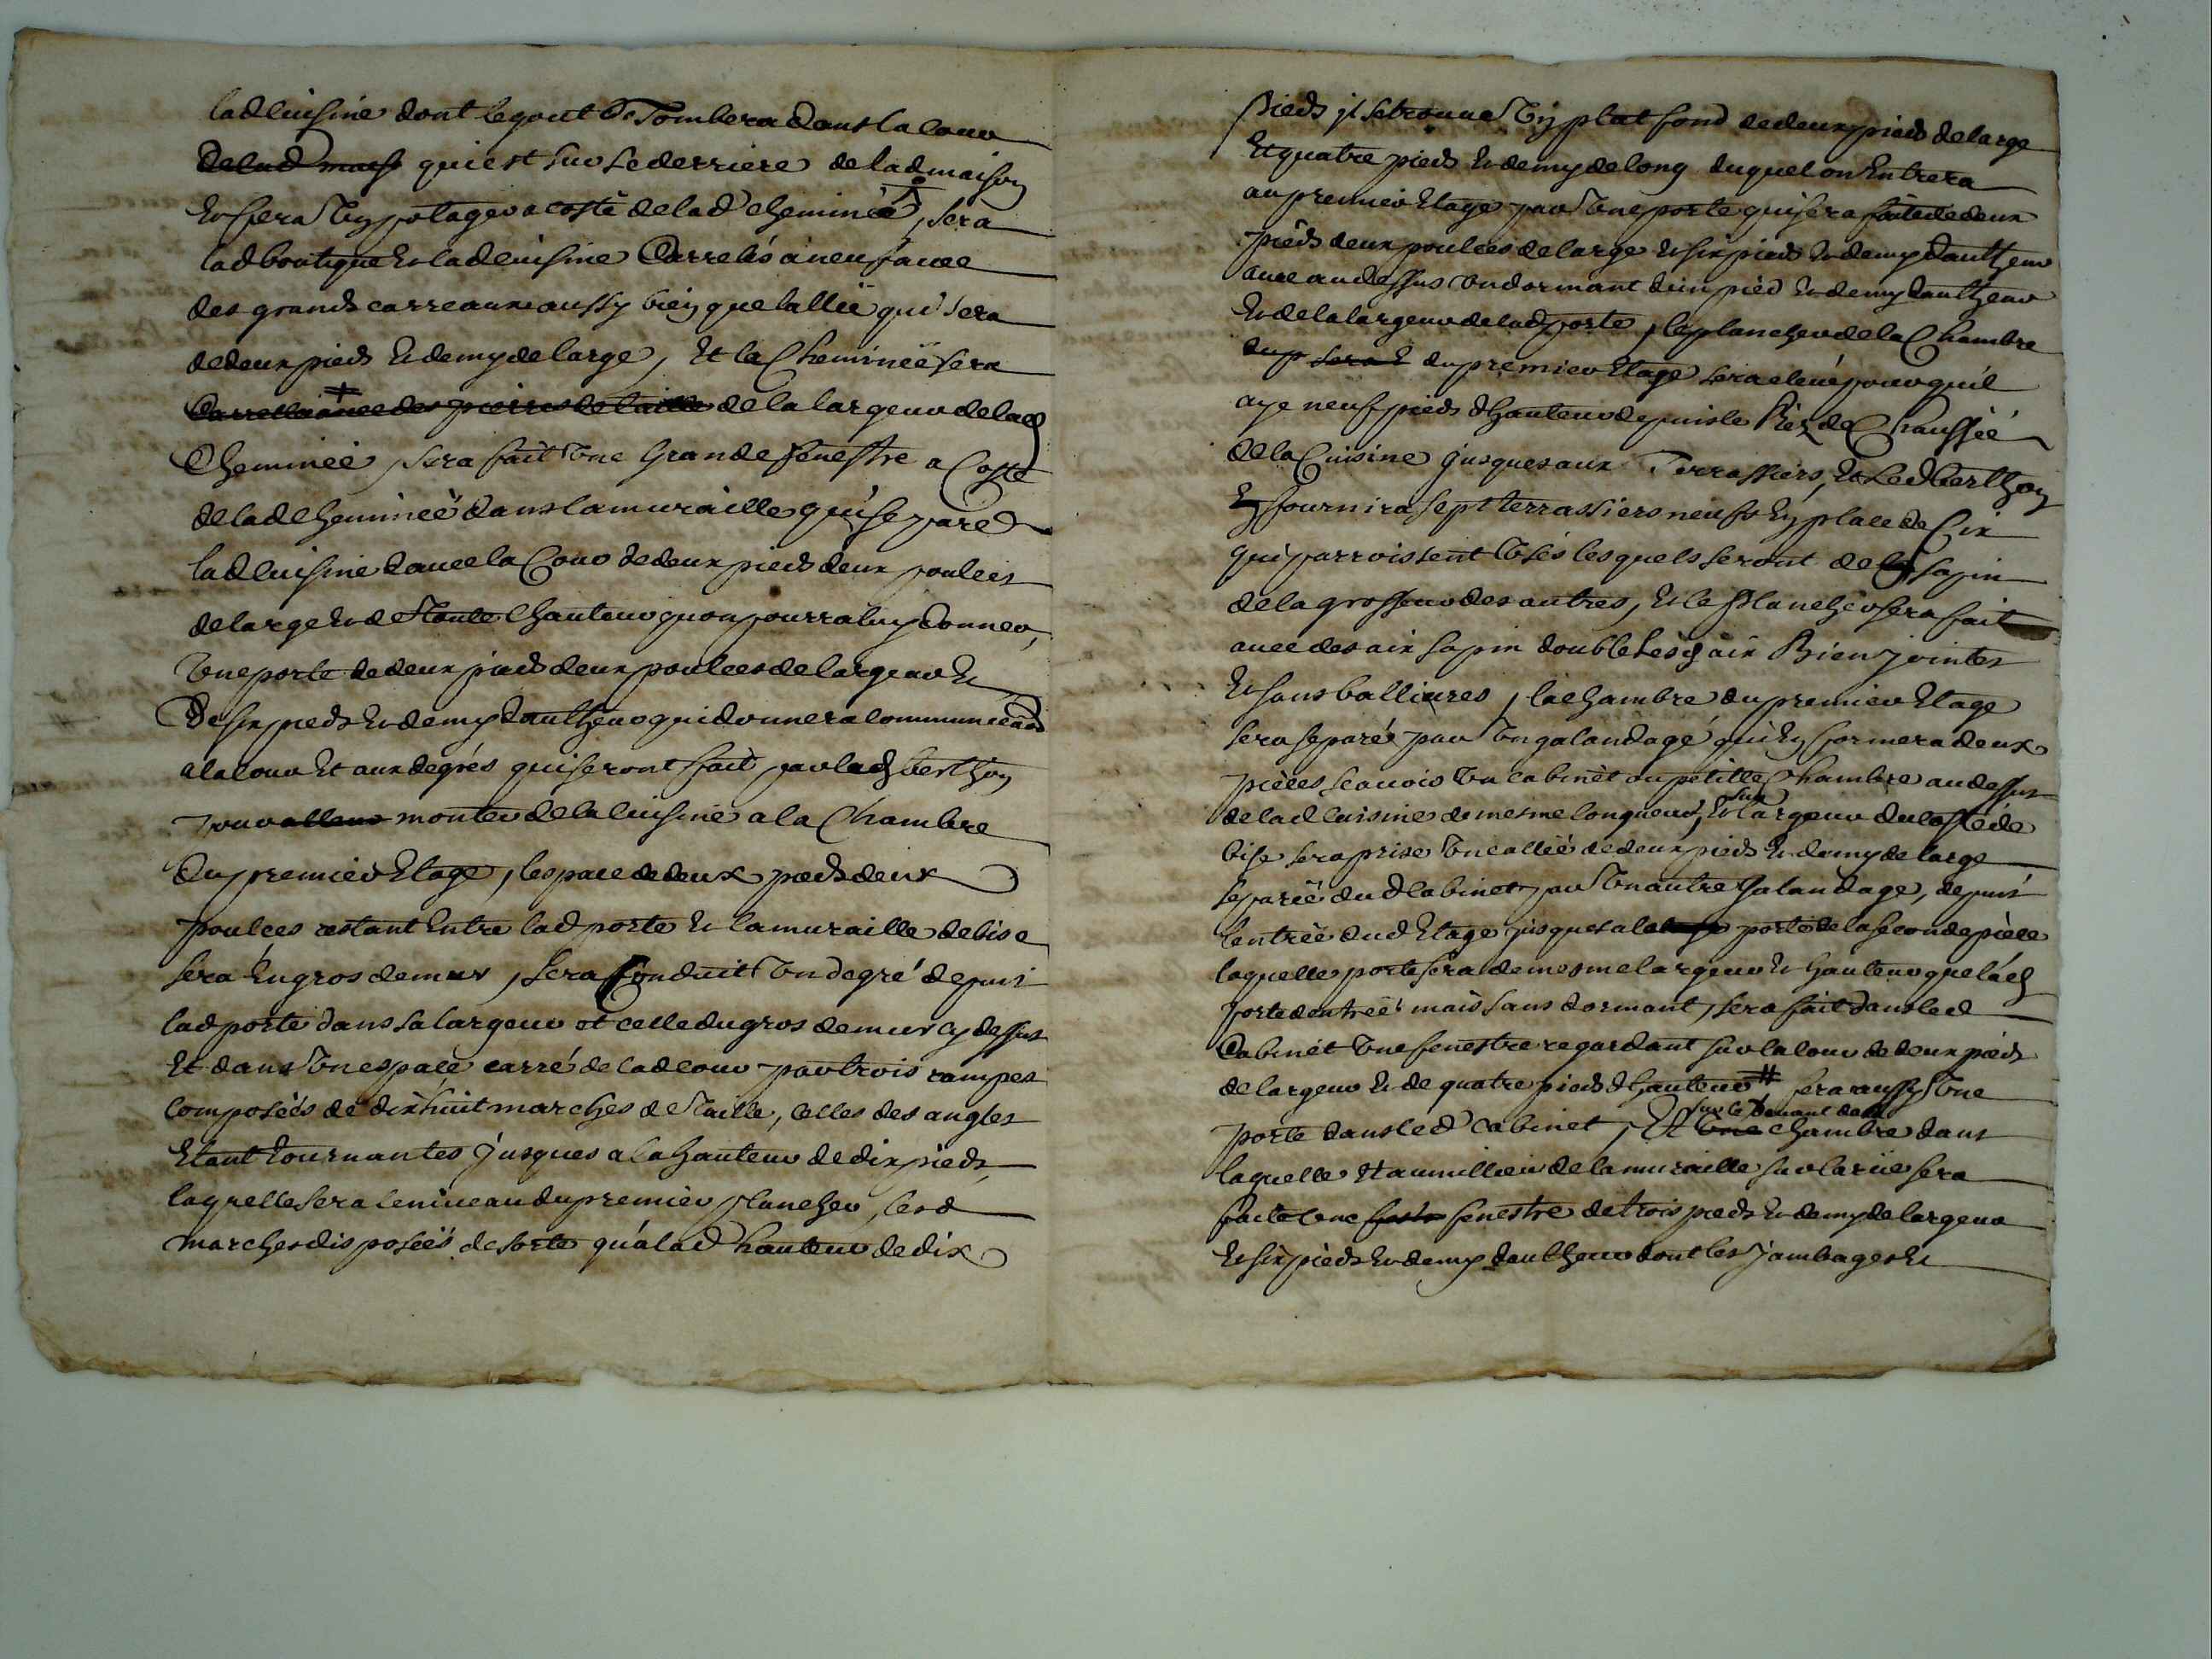 lad cuisine dont legout Tombera dans la cour
de lad mais qui est sur le derriere de lad maison
et fera un potager a costé de lad cheminée, sera
lad boutique et lad cuisine Carrelés a neuf avec
des grands carreaux aussy bien que lallée qui sera
de deux pieds et demy de large, Et la Cheminée sera
Carrellée avec des pierres de taille de la largeur de lad
Cheminée, sera fait une Grande fenestre a Costé
de lad cheminée dans la muraille qui separe
lad cuisine d'avec la Cour de deux pieds deux poulces
de large et de toute lhauteur quon pourra luy donner,
une porte de deux pieds deux poulces de largeur et
De six pieds et demy d'aulheur qui donnera communicaon
a la cour Et aux degrés qui seront fait par led berthon
pour aller monter de la cuisine a la Chambre
Du premier Etage, lespace de deux pieds deux
poulces restant Entre lad porte et la muraille de bise
sera En gros de mur, sera Conduit un degré depuis
lad porte dans sa largeur et celle du gros de mur cy dessus
Et dans un espace carré de lad cour par trois rampes
composéés de dixhuit marches de Taille, celles des angles
Etant tournantes jusques a la hauteur de dix pieds,
laquelle sera le niveau du premier plancher, lesd
marches disposéés de sorte qu'a lad hauteur de dix
Pieds jl se trouve un plat fond de deux pieds de large
Et quatre pieds et demy de long duquel on Entrera
au premier Etage par une porte qui sera faite de deux
pieds deux poulces de large et six pieds et demy d'aulheur
avec au dessus un dormant d'un pied et demy d'aulheur
et de la largeur de lad porte, le plancher de la Chambre
du p sera E du premier Etage sera elevé pour quil
aye neuf pieds dhauteur depuis le Réz de Chaussée
de la Cuisine jusques aux Terrassiers, et led berthon
En fournira sept terrassiers neufs En place de Ceux
qui parroissent usés lesquels seront de sapin
de la grosseur des autres, et le plancher sera fait
avec des aix sapin doublé lesq aix Bien jointes
et sans ballieures, la chambre du premier Etage
sera separée par un galandage qui En formera deux
pieces scavoir un cabinet ou petitte Chambre au dessus
de lad cuisine de mesme longueur, et sur largeur du costé de
bise sera prise une allée de deux pieds et demy de large
separée dud cabinet par un autre Galandage, depuis
lentrée dud Etage jusques a la porte de la seconde piece
laquelle porte sera de mesme largeur et hauteur que lad
porte d'entrée mais sans dormant, sera fait dans led
Cabinet une fenestre regardant sur la cour de deux pieds
de largeur et de quatre pieds dhauteur # sera aussy une
porte dans led cabinet, Et sur le devant de la une chambre dans
laquelle Et au millieu de la muraille sur la rüe sera
faite une fenestre de trois pieds et demy de largeur
et six pieds et demy d'aulheur dont les jambages et